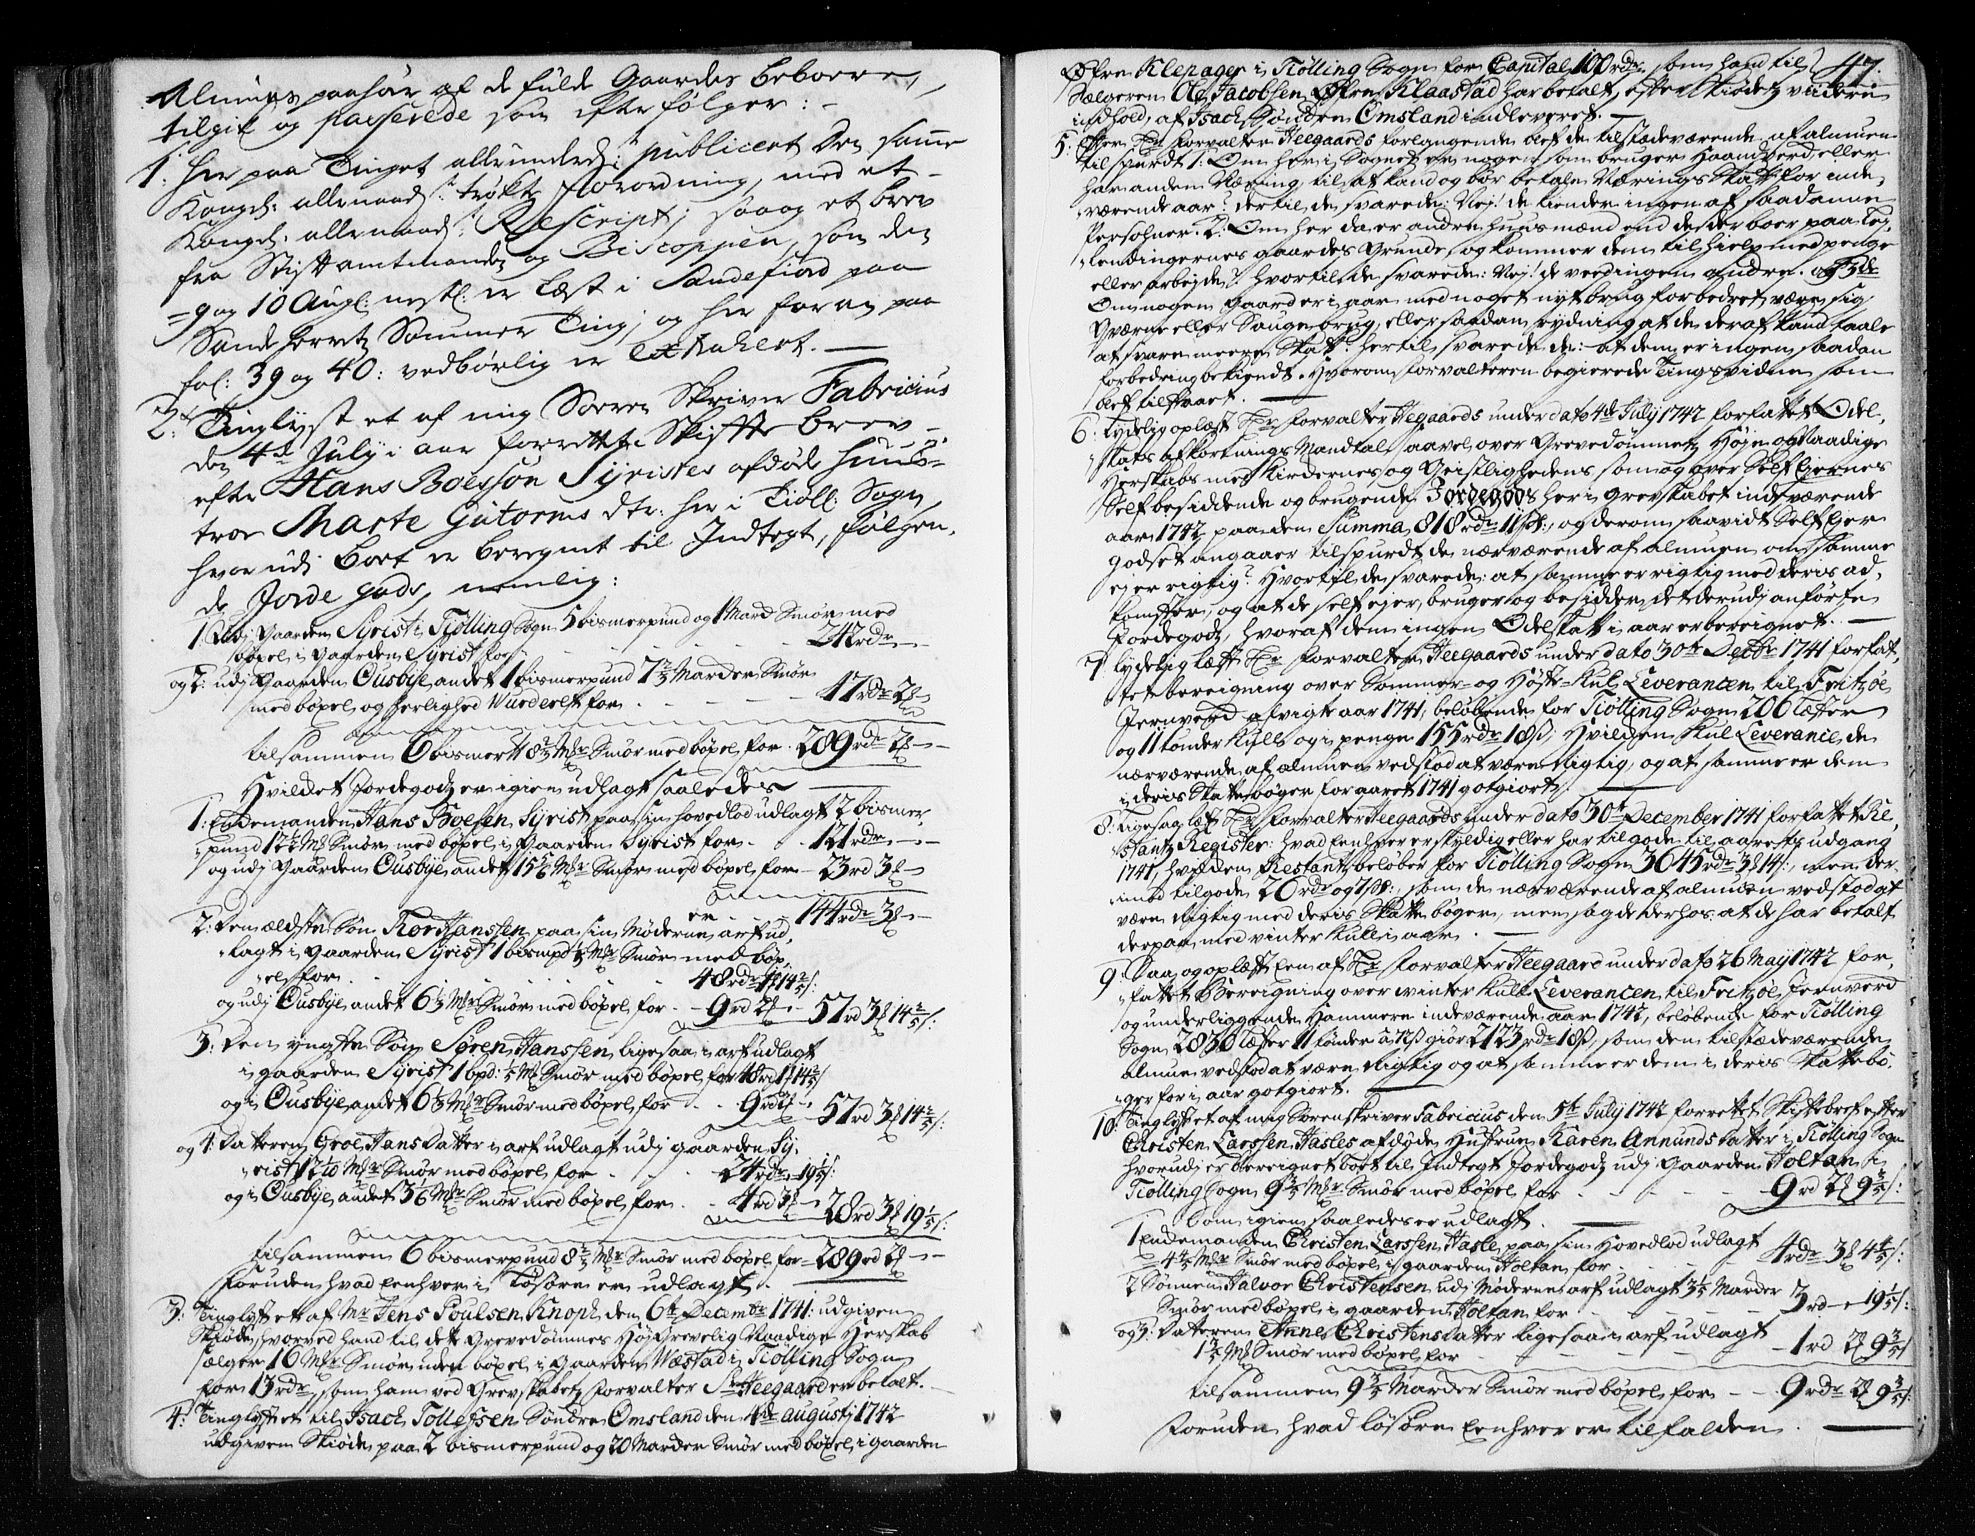 Almues paahør af de fulde Gaardes beboere,
tilgik og passerede som efterfølger: -
1: her paa Tinget allerunderd: publicert den samme
Kongel: allernaad: trøkte Forordning, med et -
Kongel: allernaad: Rescript; saa og et brev
fra Stiftamtmanden og Biscoppen, som den
9 og 10 Augl: nestl: er læst i Sandefiord paa
Sande herrets Sommer Ting, og her foran paa
fol: 39 og 40: vedbørlig er Extrahert. —
2: Tinglyst et af mig Soren Skriver Fabricius
den 4de July i aar forrettet Skifte brev -
efter Hans Boesson Syristes afdøde huus-
troe Marte Gutorms dtr: her i Tiöll: Sogn,
hvorudj bort er beregnet til Indtegt, følgen-
de Jorde gods, nemlig:
1 Udj Gaarden Syrist i Tiölling Sogn 5 bismerpund og 1 Mark Smør med
bøxel i Gaarden Syrist for . . . 242 rdr — —
og 2: udj Gaarden Ousbye andet 1 bismerpund 7 2/3 Marker Smør
med bøxel og herlighed Vurderet for . — — 47 rdr 2 ß
tilsammen 6 bismert 8 2/3 Mkr Smør med bøxel for . 289 rdr 2 ß — —
Hvilket Jordegodz er igien udlagt saaledes —
1: Enkemanden Hans Boesen Syrist paa sin hovedlod udlagt 2 bismer-
pund 12 1/2 Mk Smør med bøxel i Gaarden Syrist for . . 121 rdr — —
og udj Gaarden Ousbye andet 15 5/6 Mkr Smør med bøxel for — 23 rd 3 ß
er . 144 rdr 3 ß — —
2: Den ældste Søn Tor Hanssen paa sin Møderne arf ud-
lagt i Gaarden Syrist 1 bismpd 1/5 Mkr Smør med bøx-
el for . . . . . 48 rdr 1 ß 14 2/5 s:
og udj Ousbye andet 6 1/3 Mkr Smør med bøxel for . — 9 rd 2 ß — 57 rd 3 ß 14 2/5 s:
3: Den yngste Søn Søren Hanssen ligesaa i arf udlagt
i gaarden Syrist 1 bpd: 1/5 Mk Smør med bøxel for 48 rd 1 ß 14 2/5 s
og i Ousbye andet 6 1/3 Mkr Smør med bøxel for . . 9 rd 2 ß — 57 rd 3 ß 14 2/5 s:
og 4: Datteren Groe Hans datter i arf udlagt udj gaarden Sy-
rist 12 1/10 Mkr Smør med bøxel for . . 24 rdr — 19 1/5 s:
og i Ousbye andet 3 1/6 Mkr Smør med bøxel for . . 4 rd 3 ß — 28 rd 3 ß 19 1/5 s:
tilsammen 6 bismerpund 8 2/3 Mkr Smør med bøxel for — 289 rd 2 ß — —
Foruden hvad Eenhver i Løsøre er udlagt.
3: Tinglyst et af Mr Jens Poulsen Knoph den 6te Decembr 1741: udgiven
Skiøde, hvorved hand til dette Grevedømmes Høj Grevelig Naadige Herskab
sælger 16 Mkr Smør uden bøxel i Gaarden Wæstad i Tiölling Sogn
for 13 rdr, som ham ved Grevskabets Forvalter Sr Heegaard er betalt. —
4: Tinglyst et til Isach Tollefsen Söndre Omsland den 4de augustj 1742
udgiven Skiøde paa 2 bismerpund og 20 Marker Smør med bøxel i gaarden
47.
Øfre Klepager i Tiölling Sogn for Capital 100 rdr. som hand til
Sælgeren Ole Jacobsen Øfre Klaastad har betalt, efter Skiødets viidere
indhold, af Isach Søndre Omsland indleveret. —
5: Efter Sr Forvalter Heegaards forlangende blef de tilstædeværende af almuen
tilspurdt 1: Om her i Sognet er nogen som bruger Haandverk eller
har anden Næring, til at kand og bør betale Nærings Skatt for inde-
værende aar? dertil de svarede: Nej! de kiender ingen af saadanne
Persohner. 2: Om her da er andre huusmænd end de der boer paa Lej-
lendingernes gaardes Grunde, og kommer dem til hielp med penge
eller arbejde? hvortil de svarede: Nej! de veed ingen andre. og 3de
Om nogen Gaarder i aar med noget nyt brug forbedret være sig
Qværne eller Sauge brug, eller saadan rydning at de deraf kand taale
at svare meere Skatt: hertil svarede de: at dem er ingen saadan
forbedring bekiendt. Hvorom Forvalteren begierede Tingsvidne som
blef tilstaaet. —
6: Lydelig oplæst Sr Forvalter Heegaards under dato 4de July 1742 forfattet Odel-
skats afkortnings Mandtal, saavel over Grevedømmets Høje og Naadige
Herskabs med Kirckernes og Geistlighedens, som og over Selfejernes
Selfbesiddende og brugende Jordegods her i Grevskabet indeværende
aar 1742, paa den Summa 818 rdr 11 s:, og derom saavidt Selfejer
godset angaaer tilspurdt de nærværende af almuen om samme
ej er rigtig? Hvortil de svarede: at samme er rigtig med deris ad-
komster, og at de selfejer, bruger og besidder det derudj anførte
Jordegodz, hvoraf dem ingen Odelskat i aar er beregnet. —
7: Lydelig læst Sr Forvalter Heegaards under dato 30te Decbr 1741 forfat-
tet bereigning over Sommer- og Høst-Kul Leverancen til Fritzøe
Jernverk afvigte aar 1741, beløbende for Tiölling Sogn 206 læster
og 11 tønder Kull og i penge 155 rdr 18 ß, Hvilken Kul Leverance de
nærværende af almuen vedstod at være Rigtig, og at samme er dem
i deris Skattebøger for aaret 1741 gotgiort. —
8: Ligesaa læst Sr Forvalter Heegaards under dato 30te December 1741 forfattet Re-
stantz Register: hvad Eenhver er skyldig eller har til gode til aarets udgang
1741, hvilken Restantz beløber for Tiölling Sogn 3645 rdr 3 ß 14 s:, men der-
imod til gode 26 rdr og 7 s:, som de nærværende af almuen vedstod at
være Rigtig med deris Skattebøger, men sagde derhos at de har betalt
derpaa med vinter Kull i aar. —
9: Saa og oplæst Een af Sr Forvalter Heegaard under dato 26 May 1742 for-
fattet Bereigning over winter Kull Leverancen til Fritzøe Jernverk
og underliggende Hammere indeværende aar 1742, beløbende for Tiölling
Sogn 2830 læster 11 tønder à 72 ß giør 2123 rdr 18 ß, som den tilstædeværende
almue vedstod at være Rigtig og at samme er dem i deris Skattebø-
ger for i aar gotgiort. —
10: Tinglyst et af mig Sorenskriver Fabricius den 5te July 1742 forrettet Skiftebref efter
Christen Larssen Hasles afdøde Hustrue Karen Annunds datter i Tiölling Sogn
hvorudj er bereignet bort til Indtegt Jordegodz udj Gaarden Holtan i
Tiölling Sogn 9 3/5 Mkr Smør med bøxel for . — — 9 rd 2 ß 9 3/5 s:
Som igien saaledes er udlagt. —
1 Enkemanden Christen Larssen Hasle paa sin Hovedlod udlagt
4 4/5 Mkr Smør med bøxel i gaarden Holtan for . . . 4 rdr 3 ß 4 4/5 s:
2 Sønnen Halvor Christensen udj Møderne arf udlagt 3 1/5 Marker
Smør med bøxel i gaarden Holtan for — — 3 rd — 19 1/5 s:
og 3: Datteren Anne Christens datter ligesaa i arf udlagt
1 3/5 Mk Smør med bøxel for — — 1 rd 2 ß 9 3/5 s
tilsammen 9 3/5 Marker Smør med bøxel for — — 9 rdr 2 ß 9 3/5 s:
Foruden hvad løsøre Eenhver er tilfalden. —